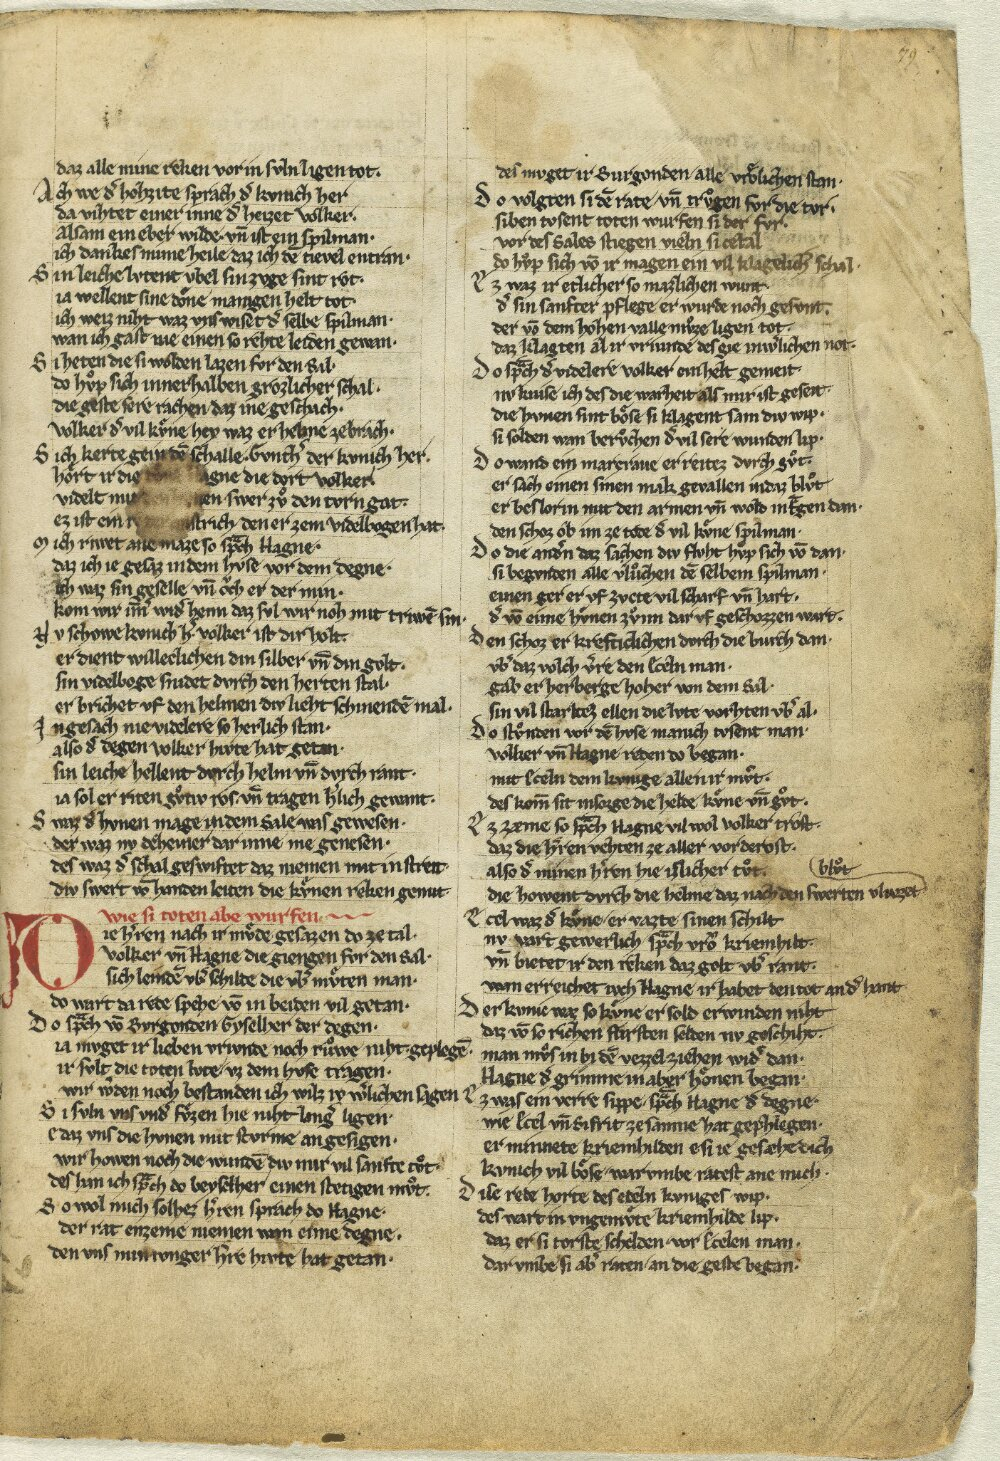 79
daz alle mine reken vor in svln ligen tot·
Ach we d̓ hohzite sprach d̓ kvnich her
da vihtet einer inne d̓ heizet volker·
alsam ein eber wilde· vn̄ ist ein spilman·
ich dankes mime heile daz ich de tievel entran·
Sin leiche lvtent vbel sin zvge sint rot·
ia wellent sine done manigen helt tot·
ich weiz niht waz vns wiset d̓ selbe spilman·
wan ich gast nie einen so rehte leiden gewan·
Si heten die si wolden lazen fvr den Sal·
do hvͦp sich innerhalben grozlicher schal·
die geste sere rachen daz in e geschach·
Volker d̓ vil kvͤne hey waz er helme zebrach·
Sich kerte gein dē schalle· Gvnth̓ der kvnich her·
hort ir die agne die dort volker
videlt mit en swer zvͦ den tvrn gat·
ez ist ein r strich den er zem videlbogen hat·
Mich rivwet ane maze so sp̄ch Hagne·
daz ich ie gesaz in dem hvse vor dem degne·
ich waz sin geselle vn̄ oͮch er der min·
kom wir im̄ wid̓ heim daz svl wir noh mit triwē sin·
Nv schowe kvnich h̓ volker ist dir holt·
er dient willeclichen din silber vn̄ din golt·
sin videlboge snidet dvrch den herten stal·
er brichet vf den helmen div lieht schinendē mal·
Ingesach nie videlere so herlich stan·
also d̓ degen volker hivte hat getan·
sin leiche hellent dvrch helm vn̄ dvrch rant·
ia sol er riten gvͦtiv ros· vn̄ tragen h̓lich gewant·
Swaz d̓ hvnen mage in dem Sale was gewesen·
der waz nv deheiner dar inne me genesen·
des waz d̓ schal geswiftet daz niemen mit in streit·
div swert vō handen leiten die kvͤnen reken gemeit·
wie si toten abe wurfen
Die h̓ren nach ir mvͦde gesazen do ze tal·
Volker vn̄ Hagne die giengen fvr den Sal·
sich leindē vb̓ schilde die vb̓ mvͤten man·
do wart da rede spehe vō in beiden vil getan·
Do sp̄ch vō Bvrgonden Gyselher der degen·
ia mvget ir lieben vrivnde noch rvͦwe niht geplegē·
ir svlt die toten lvte vz dem hvse tragen·
wir w̓den noch bestanden ich wilz iv w̓lichen sagen
Si svln vns vnd̓ fvͤzen hie niht lang̓ ligen·
e daz vns die hvnen mit stvrme an gesigen·
wir howen noch die wundē div mir vil sanfte tvͦt·
des han ich sp̄ch do Geyselher einen stetigen mvͦt·
So wol mich solhez h̓ren sprach do Hagne·
der rat enzeme niemen wan eime degne·
den vns min ivnger h̓re hivte hat getan·
des mvget ir Burgonden alle vrolichen stan·
Do volgten si dē rate vn̄ trvͦgen fvr die tvr·
siben tvsent toten wurfen si der fvr·
vor des Sales stiegen vieln si ce tal
do hvͦp sich vō ir magen ein vil klagelich̓ schal·
Ez waz ir etlicher so mazlichen wunt
d̓ sin sanfter pflege er wurde noch gesvnt·
der vō dem hohen valle mvͦze ligen tot·
daz klagten al ir vriunde des gie in w̓lichen not·
Do sp̄ch d̓ videlere volker ein helt gemeit·
nv kiuse ich des die warheit als mir ist geseit·
die hvnen sint bose si klagent sam div wip·
si solden wan bervͦchen d̓ vil sere wunden lip·
Do wand ein marcrave er reitez dvrch gvͦt·
er sach einen sinen mak gevallen in daz blvͦt
er besloz in mit den armen vn̄ wold in trgen dan·
den schoz ob im ze tode d̓ vil kvͤne spilman·
Do die and̓n daz sachen div flvht hvͦp sich vō dan·
si begvnden alle vlvͦchen dē selbem spilman·
einen ger er vf zvcte vil scharf vn̄ hart·
d̓ vō eime hvnen zvͦ im dar vf geschozzen wart·
Den schoz er krefticlichen dvrch die bvrch dan·
vb̓ daz volch v̓re den Eceln man·
gab er herberge hoher von dem Sal·
sin vil starkez ellen die lvte vorhten vb̓ al·
Do stvͦnden vor dē hvse manich tvsent man·
Volker vn̄ Hagne reden do began·
mit Eceln dem kvnige allen ir mvͦt·
des kom̄ sit in sorge die helde kvͤne vn̄ gvͦt·
Ez zæme so sp̄ch Hagne vil wol volker trost·
daz die h̓ren vehten ze aller vorderost·
also d̓ minen h̓ren hie islicher tvͦt·
blvͦt
die howent dvrch die helme daz nach den swerten vluzet
Ecel waz d̓ kvͤne er vazte sinen schilt
nv vart gewerlich sp̄ch vro̓ kriemhilt·
vn̄ bietet ir den reken daz golt vb̓ rant·
wan erreichet ivch Hagne ir habet den tot an d̓ hant
Der kvnic waz so kvͤne er sold erwinden niht
daz vō so richen fvrsten selden nv geschiht·
man mvͦs in bi dē vezzel ziehen wid̓ dan·
Hagne d̓ grimme in aber honen began·
Ez was ein verre sippe sp̄ch Hagne d̓ degne·
wie Ecel vn̄ Sifrit zesamne hat gephlegen·
er minnete kriemhilden e si ie gesæhe dich
kvnich vil bose· war vmbe ratest ane mich·
Dise rede horte des edeln kvniges wip·
des wart in vngemvͦte kriemhilde lip·
daz er si torste schelden vor Ecelen man·
dar vmbe si ab̓ raten an die geste began·